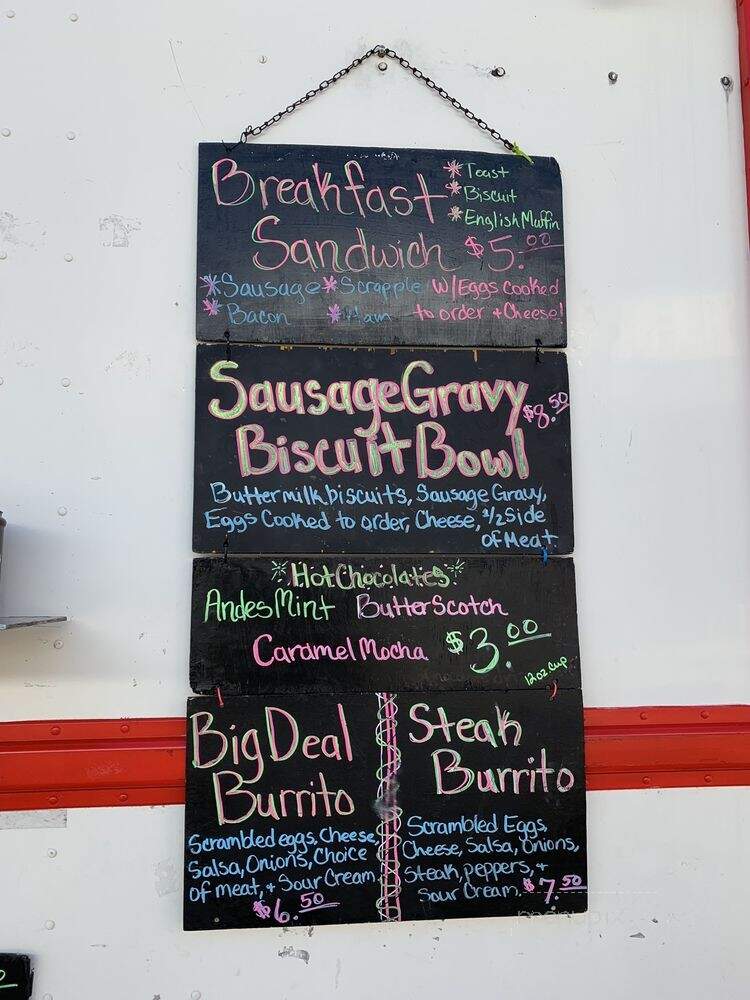 Breakfast
Sandwich
*Toast
*Biscuit
*English Muffin
$5.00
*Sausage *Scrapple
*Bacon *Ham
W/Eggs cooked
to order + Cheese!
Sausage Gravy
Biscuit Bowl
$8.50
Buttermilk biscuits, Sausage Gravy,
Eggs Cooked to order, Cheese, 1/2 Side
of Meat
Hot Chocolates
Andes Mint ButterScotch
Caramel Mocha $3.00
12oz. cup
Big Deal
Burrito
Scrambled eggs, Cheese,
Salsa, Onions, Choice
of meat, + Sour Cream
$6.50
Steak
Burrito
Scrambled Eggs,
Cheese, Salsa, Onions,
Steak, peppers, +
Sour Cream. $7.50